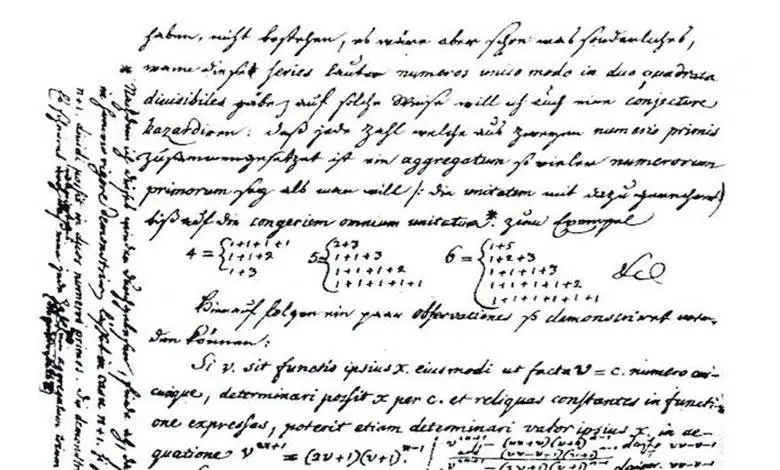 haben, nicht bestehen, es wäre aber schon was sonderliches,
wann diese series lauter numeros unico modo in duo quadrata
divisibiles gäbe auf solche Weise will ich auch eine conjecture
hazardiren: daß jede Zahl welche aus zweyen numeris primis
zusammengesetzet ist ein aggregatum so vieler numerorum
primorum sey als man will /: die unitatem mit dazu gerechnet
biß auf die congeriem omnium unitatum*. zum Exempel
4 = { 1+1+1+1
1+1+2
1+3
5 = { 2+3
1+1+3
1+1+1+2
1+1+1+1+1
6 = { 1+5
1+2+3
1+1+1+3
1+1+1+1+2
1+1+1+1+1+1
&c
Hierauf folgen ein paar observationes so demonstriret wer-
den können:
Si v. sit functio ipsius x. eiusmodi ut facta v = c. numero cui-
cunque, determinari possit x per c. et reliquas constantes in functi-
one expressas, poterit etiam determinari valor ipsius x. in ae-
quatione v²ⁿ⁺¹ = (2v+1)(v+1)ⁿ⁻¹
* Nachdem ich dieses wieder durchgelesen, finde ich, daß
in summo rigore demonstriren lässet in casu n+1. si
n+1. dividi possit in duos numeros primos. Die demonst
Es scheinet eine jede Zahl ein aggregatum trium